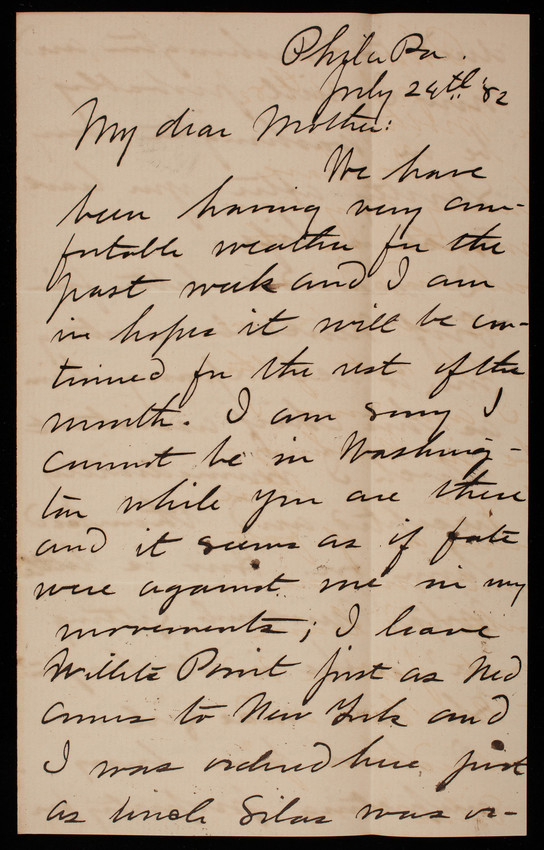 Phila Pa.
July 24th '82
My dear Mother:
We have
been having very com-
fortable weather for the
past week and I am
in hopes it will be con-
tinued for the rest of the
month. I am sorry I
cannot be in Washing-
ton while you are there
and it seems as if fate
were against me in my
movements; I leave
Willets Point first as Ned
comes to New York and
I was ordered here just
as Uncle Silas was or-